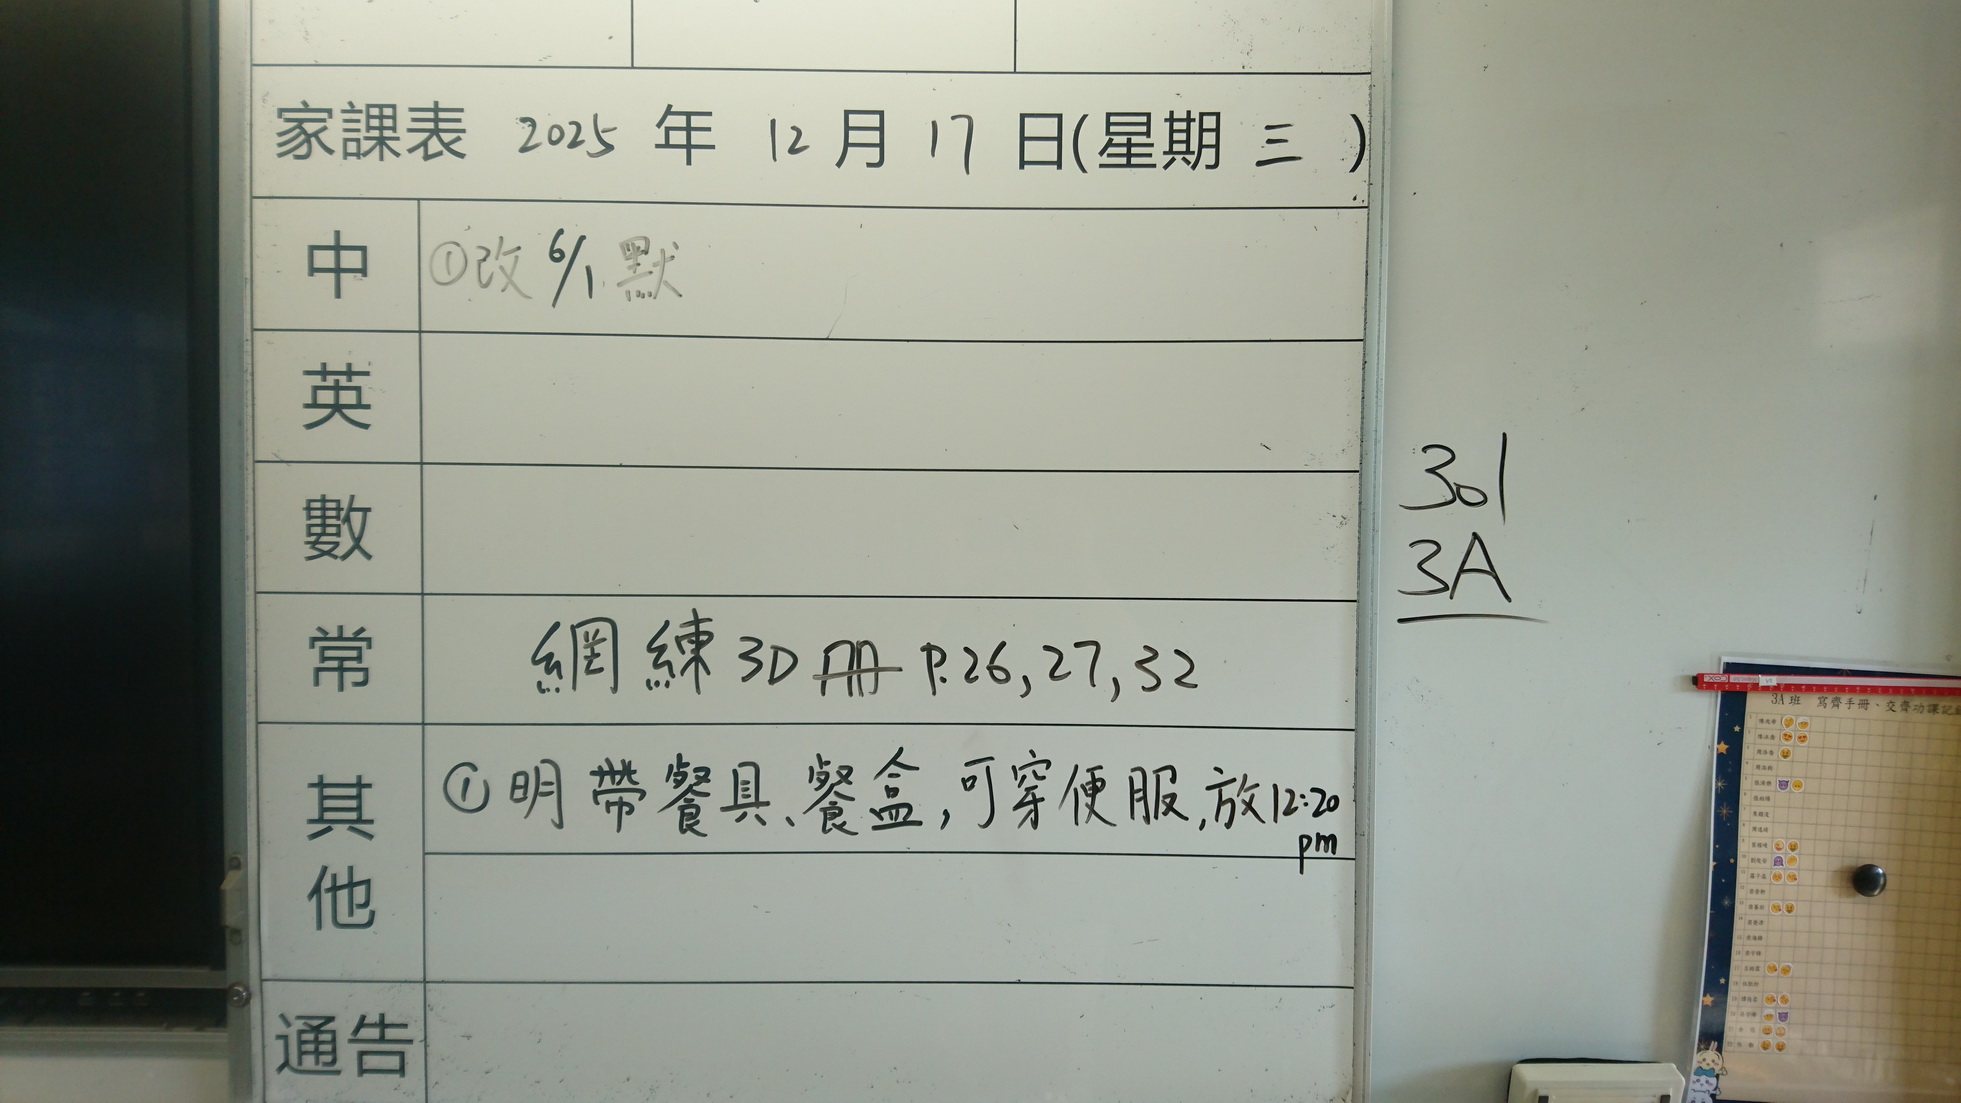 家課表 2025 年 12 月 17 日(星期 三 )
中 ①改 6/1 默
英
數
常 網練 3D 冊 P.26,27,32
其他 ①明帶餐具、餐盒,可穿便服,放12:20
pm
通告
301
3A
3A班 寫齊手冊、交齊功課記